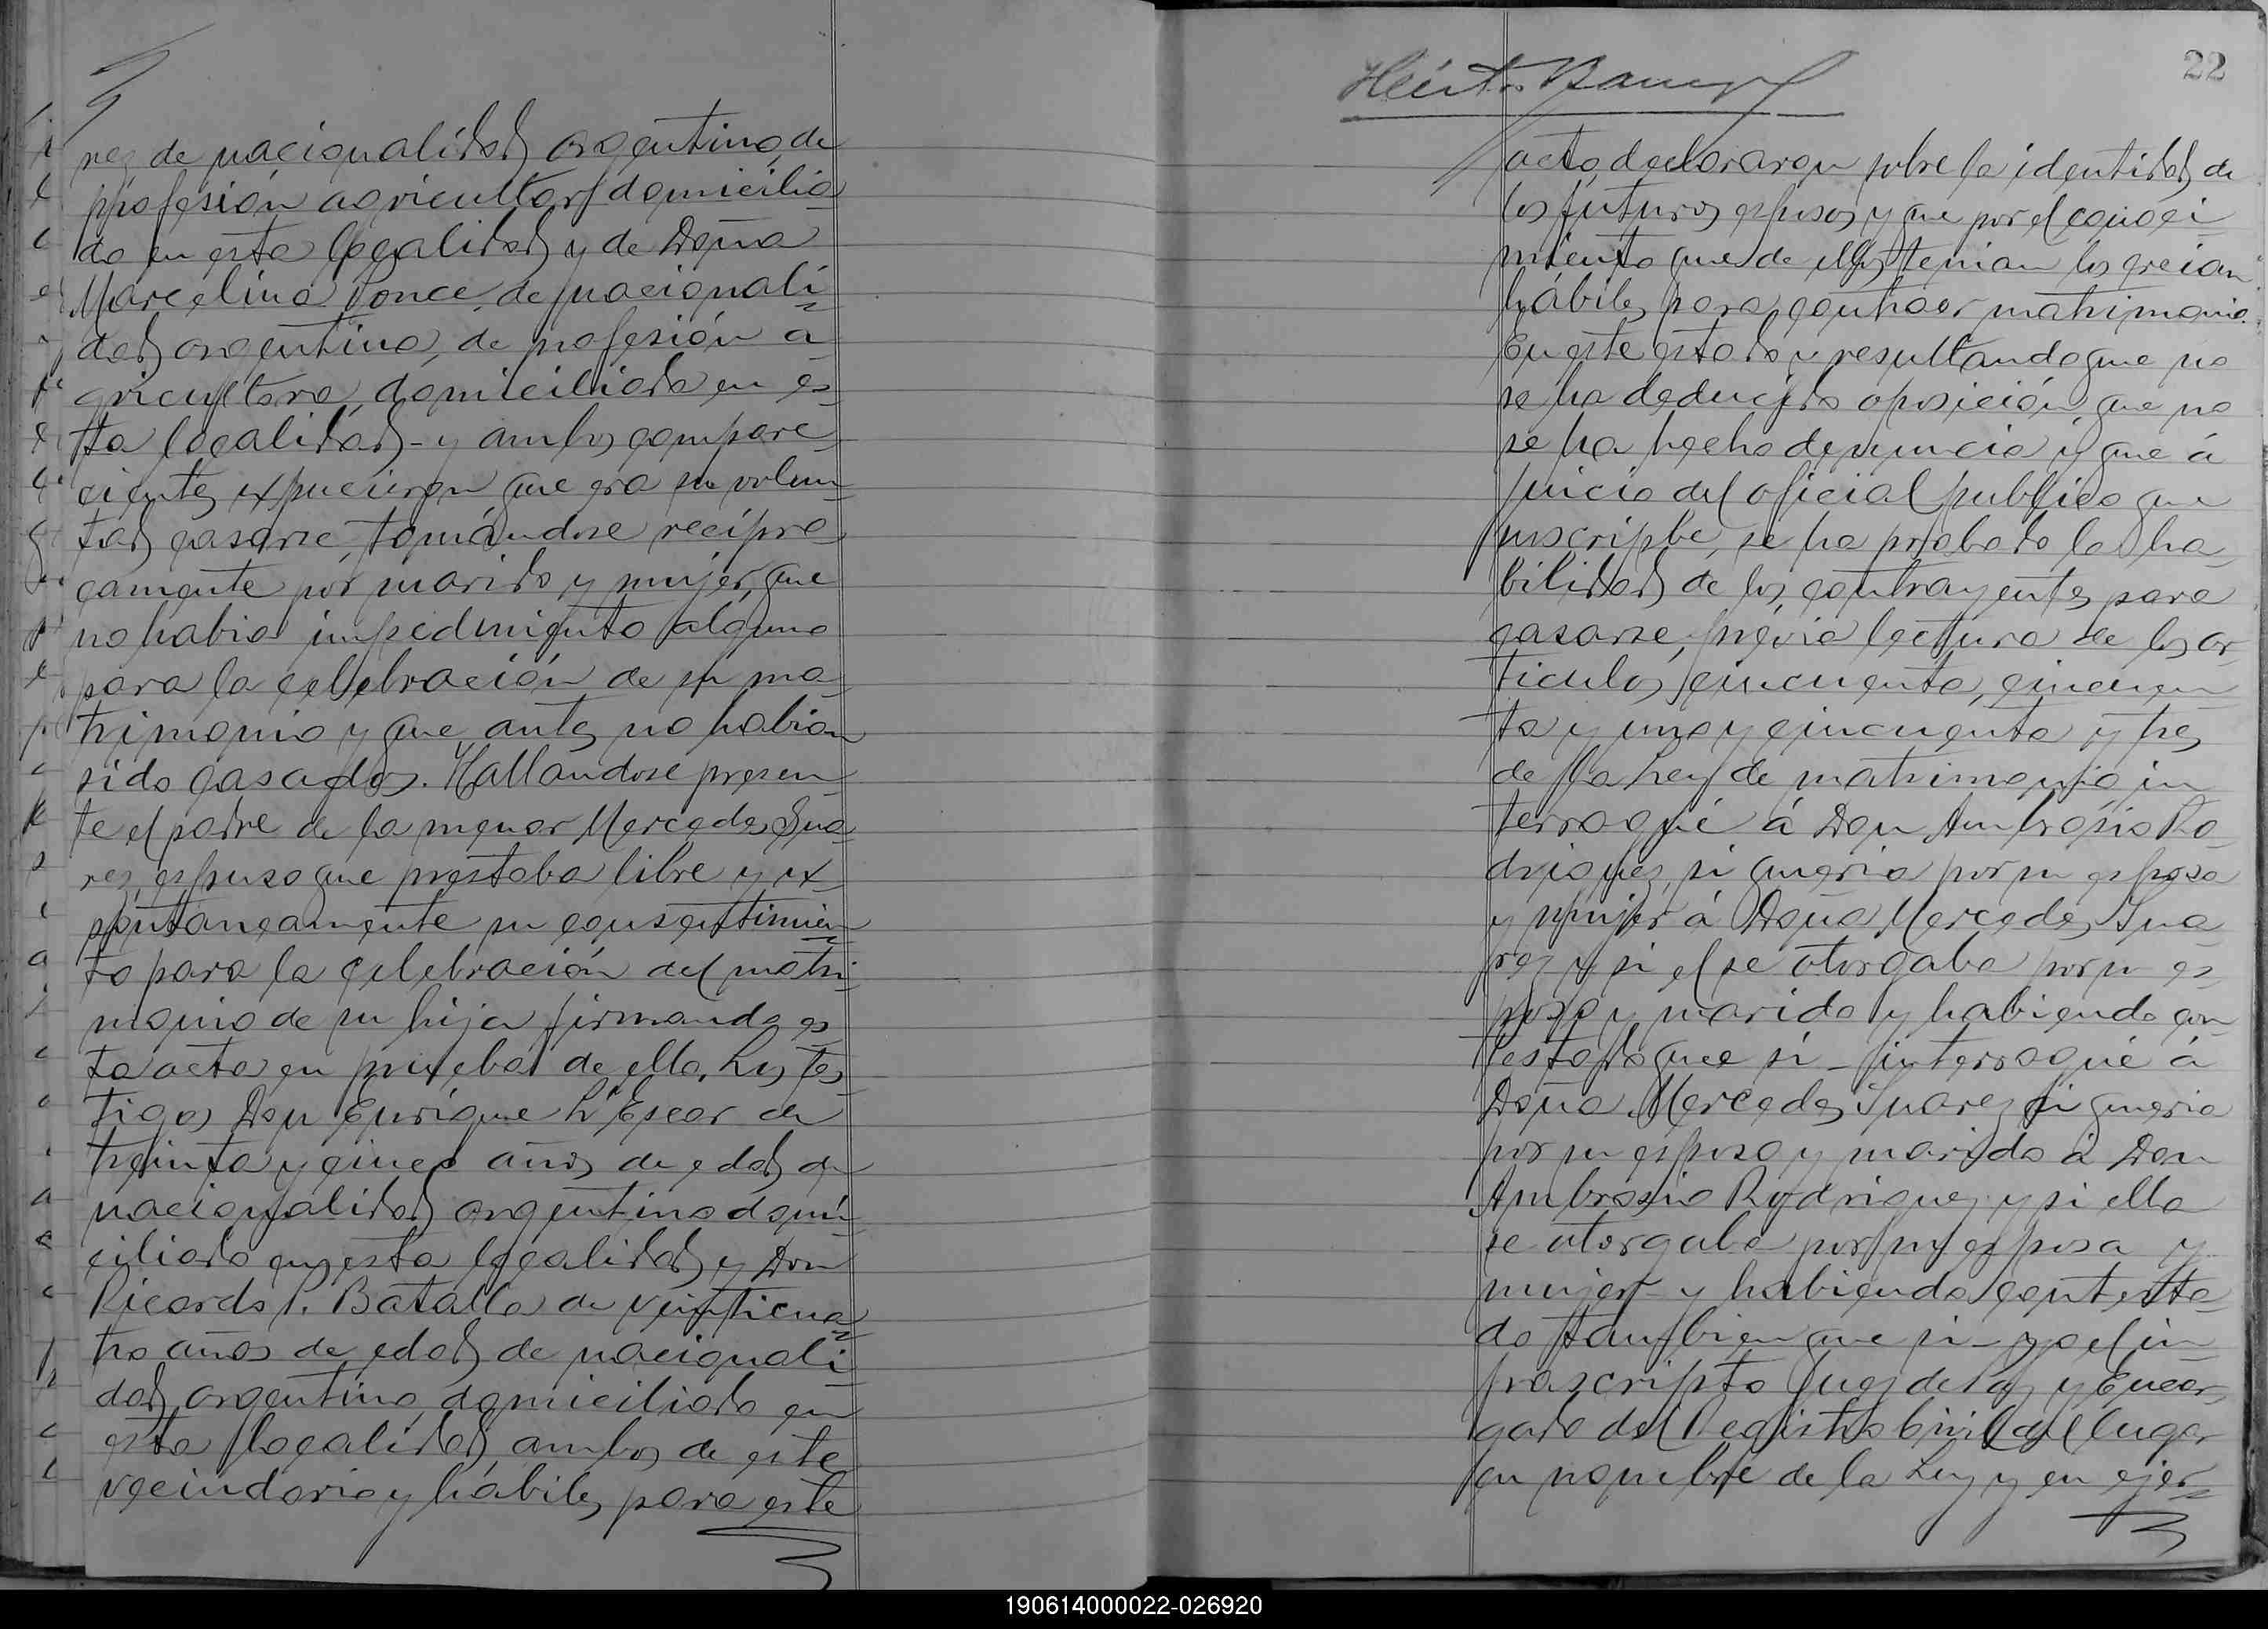 rez de nacionalidad argentino, de
profesión agricultor, domicilia
do en esta localidad y de Doña
Marcelina Ponce, de nacionali=
dad argentina, de profesión a-
gricultora, domiciliada en es-
ta localidad - y ambos compare
cientes expucieron que era su volun-
tad casarse, tomándose recipro
camente por marido y mujer, que
no habia impedimento alguno
para la celebración de su ma-
trimonio y que antes no habian
sido casados. Hallandose presen
te el padre de la menor Mercedes Sua-
rez, espuso que prestaba libre y ex-
pontaneamente su consentimien=
to para la celebración del matri-
monio de su hija firmando es-
ta acta en prueba de ello. Los tes-
tigos Don Enrique L'Escar de
treinta y cinco años de edad de
nacionalidad argentino domi-
ciliado en esta localidad y Don
Ricardo P. Batalla de veinticua=
tro años de edad de nacionali-
dad argentino, domiciliado en
esta localidad, ambos de este
vecindario y hábiles para este
22
acto, declararon sobre la identidad de
los futuros esposos y que por el conoci-
miento que de ellos tenian los creian
hábiles para contraer matrimonio.
En este estado y resultando que no
se ha deducido oposición, que no
se ha hecho denuncia y que á
juicio del oficial público que
suscripbe, se ha probado la ha-
bilidad de los contrayentes para
casarse, previa lectura de los ar-
ticulos cincuenta, cincuen-
ta y uno y cincuenta y tres
de la Ley de matrimonio in
terrogué á Don Ambrosio Ro-
driguez, si queria por su esposa
y mujer á Doña Mercedes Sua-
rez y si el se otorgaba por su es-
poso y marido y habiendo con-
testado que si - interrogué á
Doña Mercedes Suarez si queria
por su esposo y marido á Don
Ambrosio Rodriguez y si ella
se otorgaba por su esposa y
mujer - y habiendo contesta-
do tambien que si - yo el in-
frascripto Juez de Paz y Encar-
gado del Registro Civil del lugar
en nombre de la Ley y en ejer=
190614000022-026920